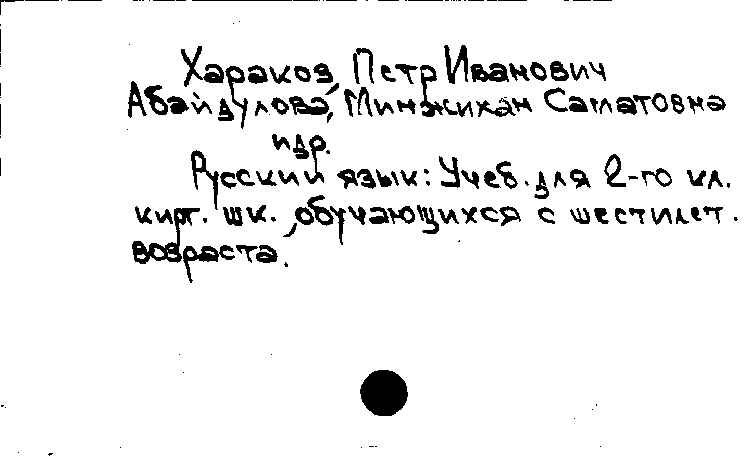 Хараков, Петр Иванович
Абайдулова, Минжихан Саматовна
и др.
Русский язык: Учеб. для 2-го кл.
кирг. шк., обучающихся с шестилет.
возраста.